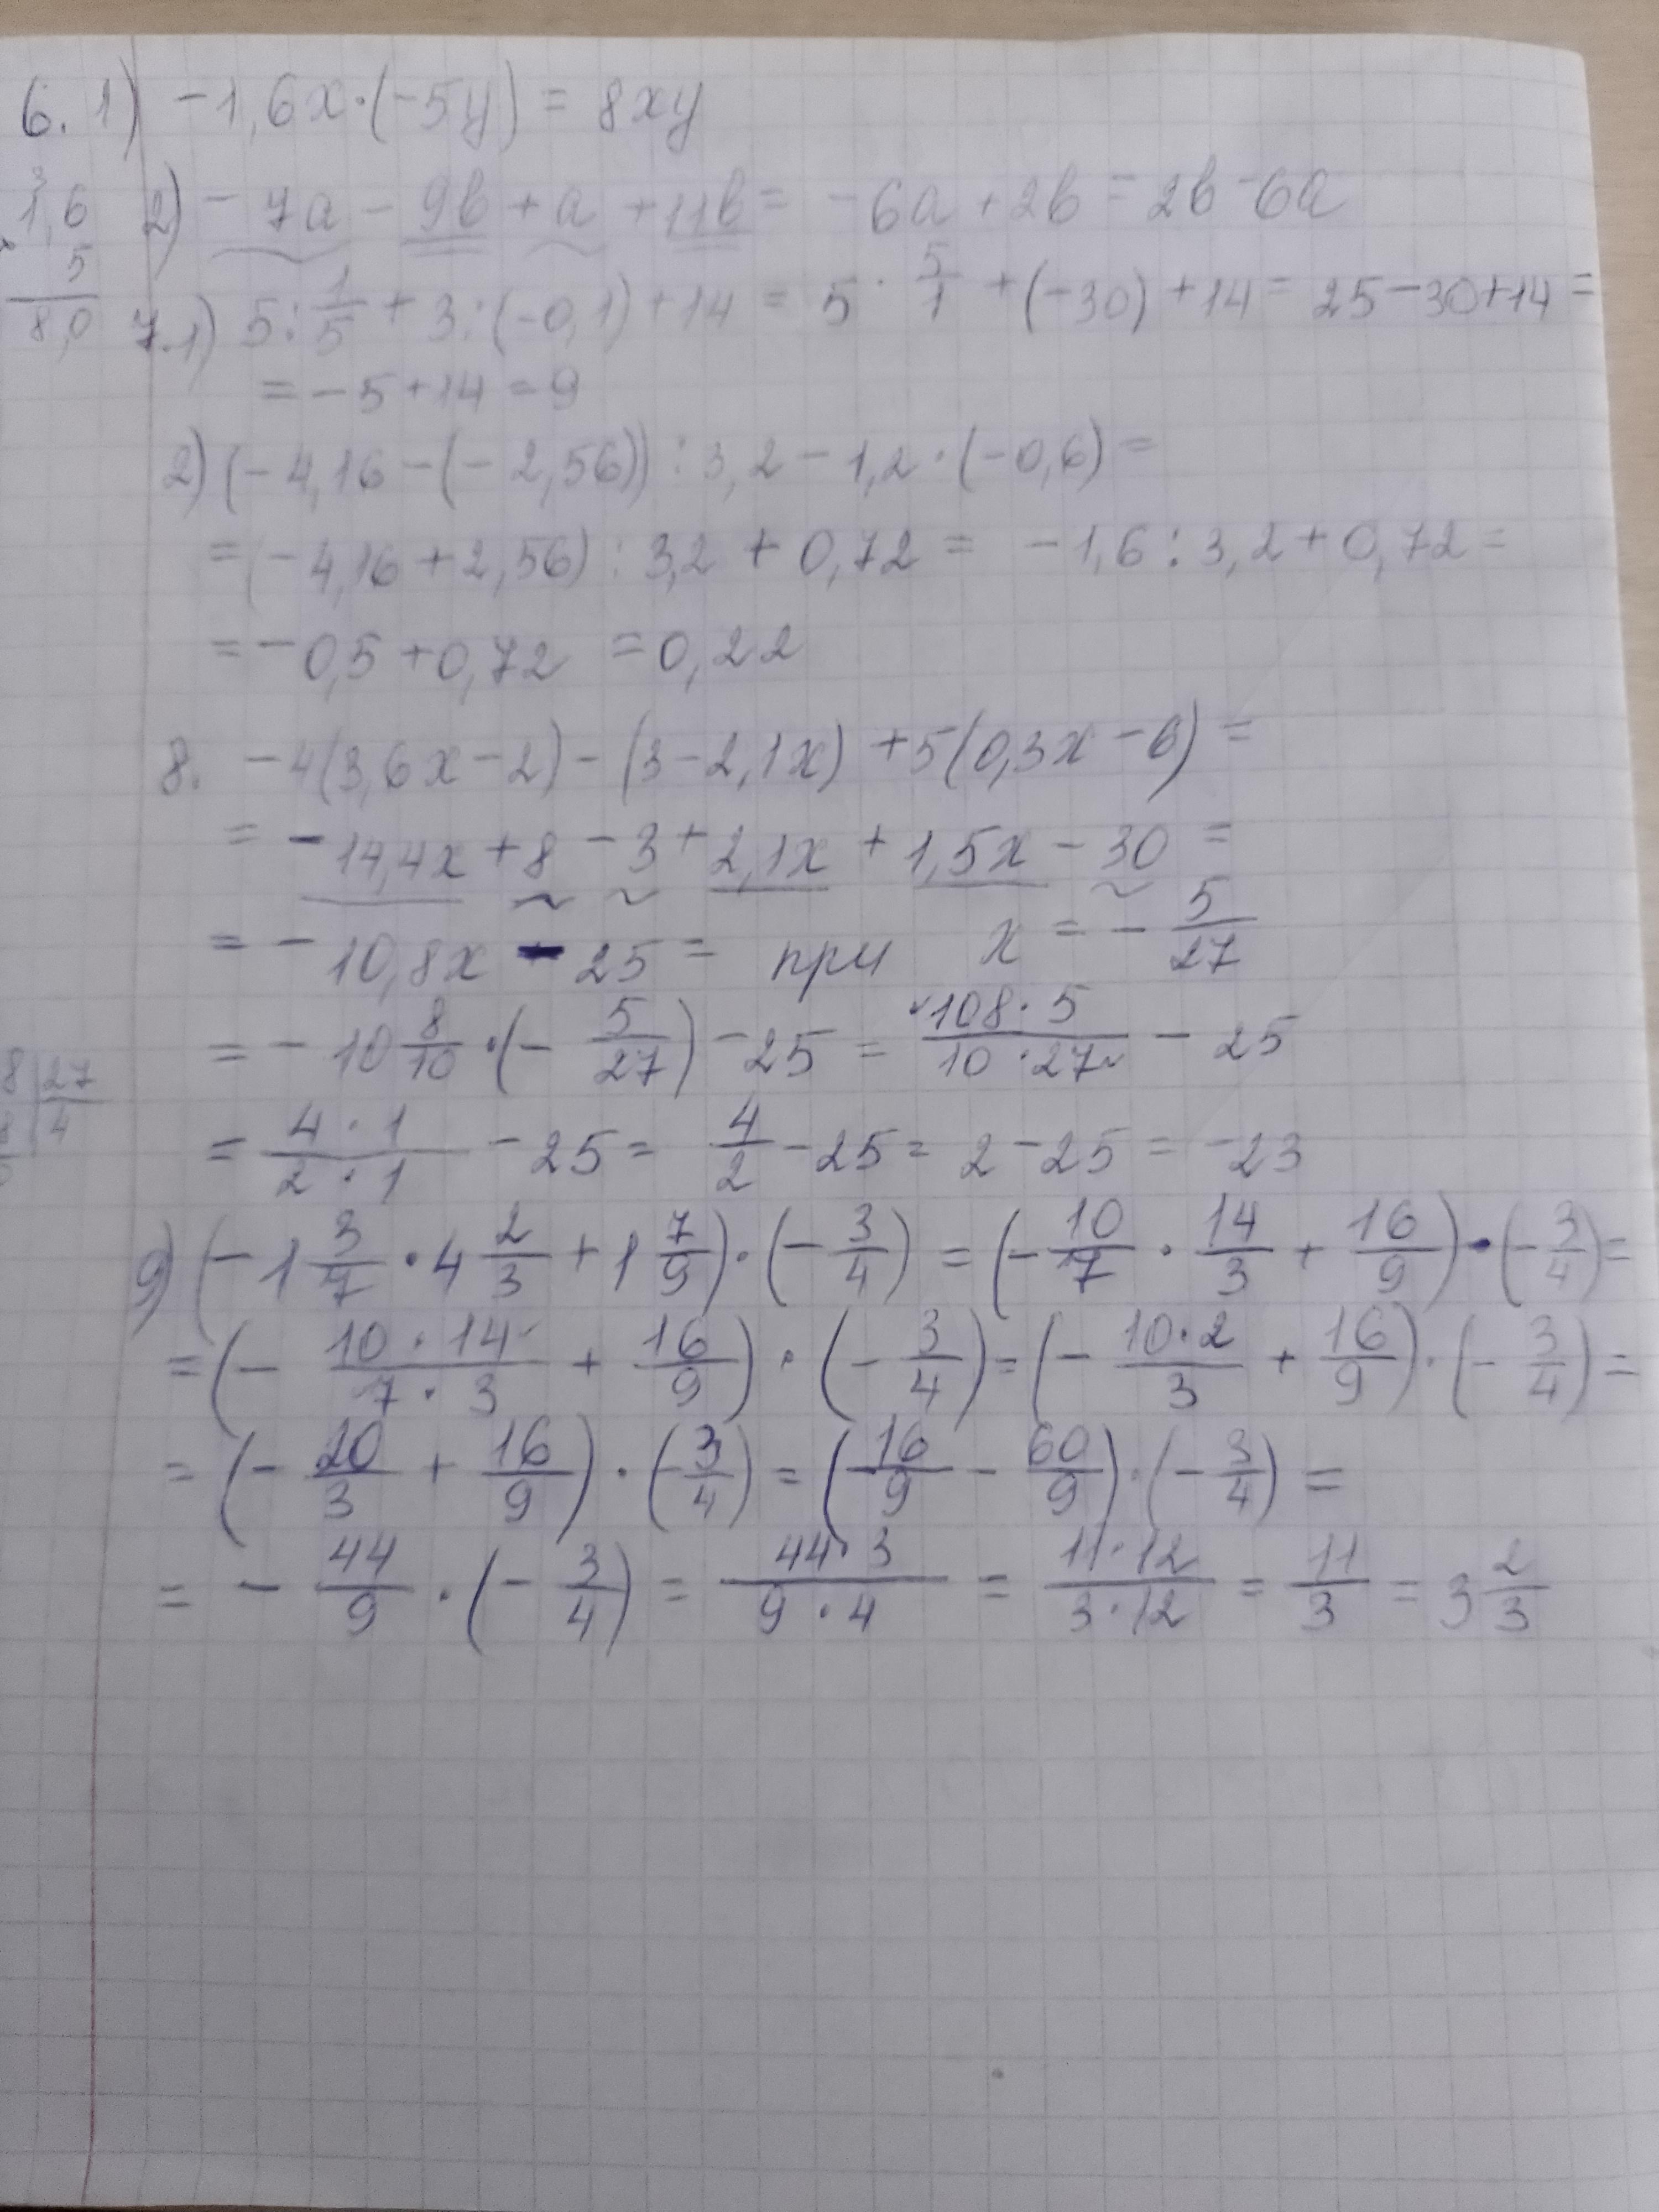 6. 1) -1,6x·(-5y) = 8xy
2) -7a - 9b + a + 11b = -6a + 2b = 2b - 6a
3
1,6
5
8,0
7.1) 5 : 1/5 + 3 : (-0,1) + 14 = 5 · 5/1 + (-30) + 14 = 25 - 30 + 14 =
= -5 + 14 = 9
2) (-4,16 - (-2,56)) : 3,2 - 1,2 · (-0,6) =
= (-4,16 + 2,56) : 3,2 + 0,72 = -1,6 : 3,2 + 0,72 =
= -0,5 + 0,72 = 0,22
8. -4(3,6x - 2) - (3 - 2,1x) + 5(0,3x - 6) =
= -14,4x + 8 - 3 + 2,1x + 1,5x - 30 =
= -10,8x - 25 = при x = - 5/27
= -10 8/10 · (- 5/27) - 25 = 108·5/10·27 - 25
8 | 27
4
= 4·1/2·1 - 25 = 4/2 - 25 = 2 - 25 = -23
9) (-1 3/7 · 4 2/3 + 1 7/9) · (- 3/4) = (- 10/7 · 14/3 + 16/9) · (- 3/4) =
= (- 10·14/7·3 + 16/9) · (- 3/4) = (- 10·2/3 + 16/9) · (- 3/4) =
= (- 20/3 + 16/9) · (- 3/4) = (16/9 - 60/9) · (- 3/4) =
= - 44/9 · (- 3/4) = 44·3/9·4 = 11·12/3·12 = 11/3 = 3 2/3